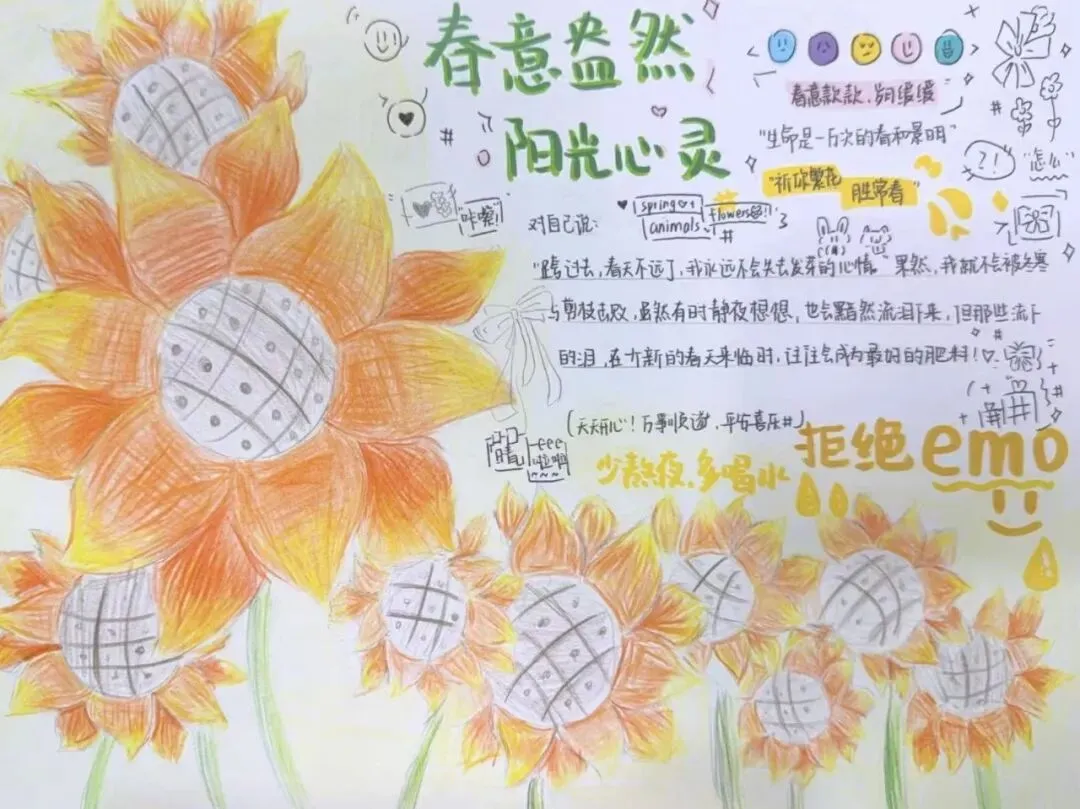 春意盎然
阳光心灵
春意款款，岁月缓缓
"生命是一万次的春和景明"
"祈你繁花
胜常春"
?!
"怎么"
"咔嚓!"
spring
animals
flowers
对自己说：
"跨过去，春天不远了，我永远不会失去发芽的心情。"果然，我就不会被冬寒
与剪枝击败，虽然有时静夜想想，也会黯然流泪下来，但那些流下
的泪，在一个新的春天来临时，往往会成为最好的肥料！
(天天开心！万事顺遂，平安喜乐#)
eee
拒绝emo
少熬夜，多喝水